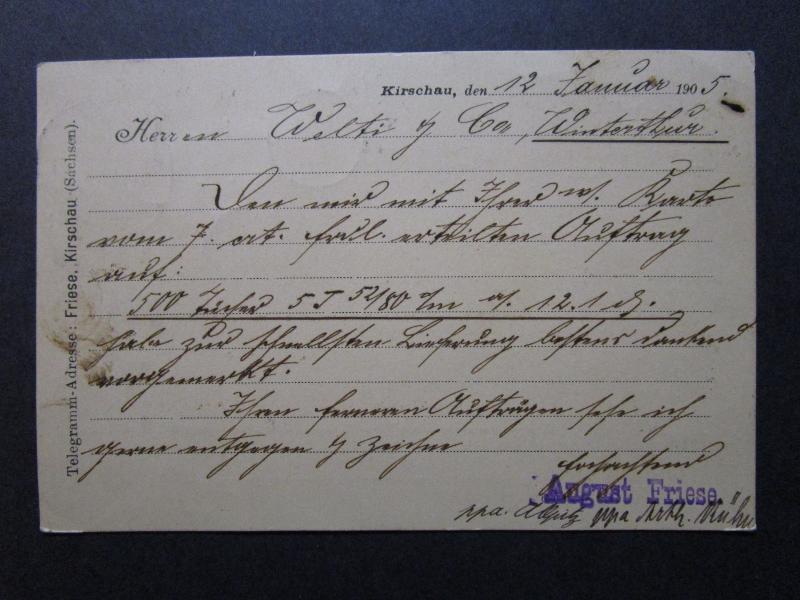 Kirschau, den 12 Januar 1905.
Herren Welti & Co, Winterthur.
Den mir mit Ihrer w. Karte
vom 7. ct. frdl. erteilten Auftrag
auf:
500 Tücher 5 T 52/80 c/m a/. 12.1 d.
habe zur schnellsten Lieferung bestens dankend
vorgemerkt.
Ihren ferneren Aufträgen sehe ich
gerne entgegen & zeichne
hochachtend
August Friese.
ppa. ppa Arth.
Telegramm-Adresse: Friese, Kirschau (Sachsen).